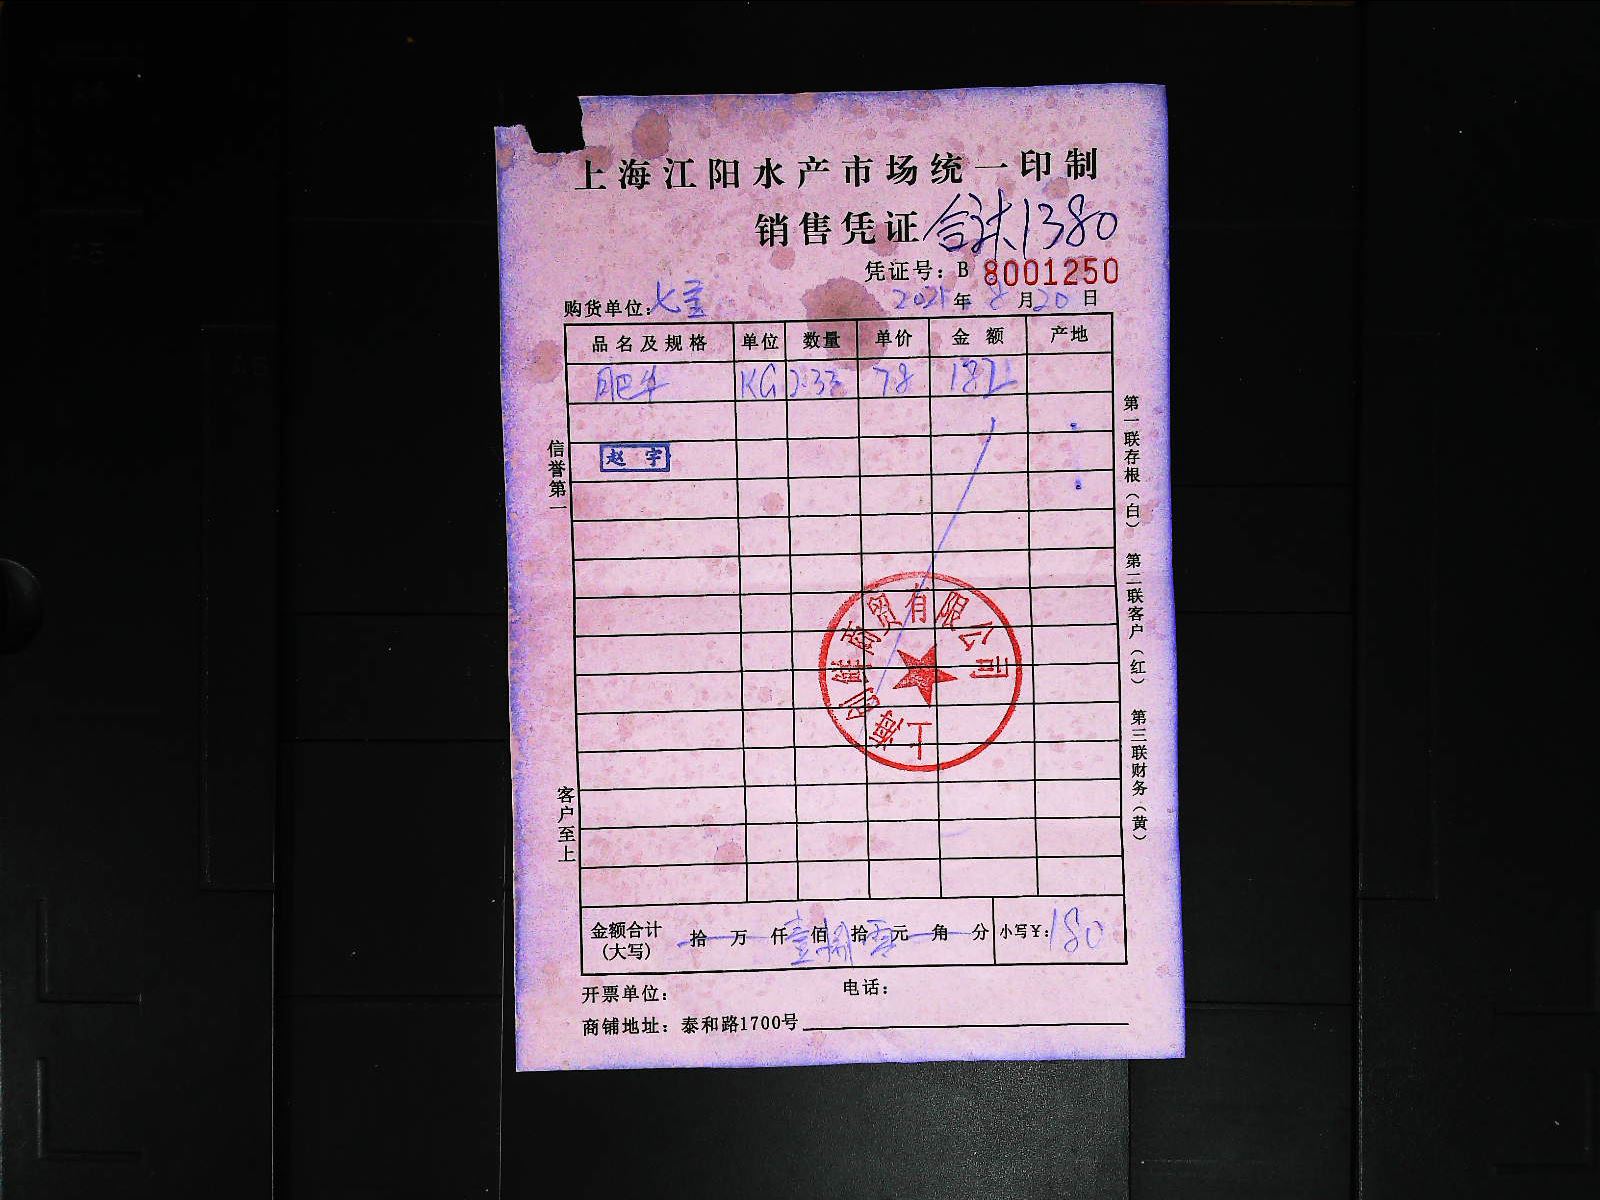 上海江阳水产市场统一印制
销售凭证 合计1380
凭证号：B 8001250
购货单位：七宝 2021年8月20日
品名及规格 单位 数量 单价 金额 产地
肥牛 KG 2.33 78 182
赵宇
信誉第一
客户至上
第一联存根（白） 第二联客户（红） 第三联财务（黄）
上海创鲜商贸有限公司
金额合计（大写） 拾 万 仟 壹佰 捌拾 元 角 分 小写¥：180
开票单位： 电话：
商铺地址：泰和路1700号